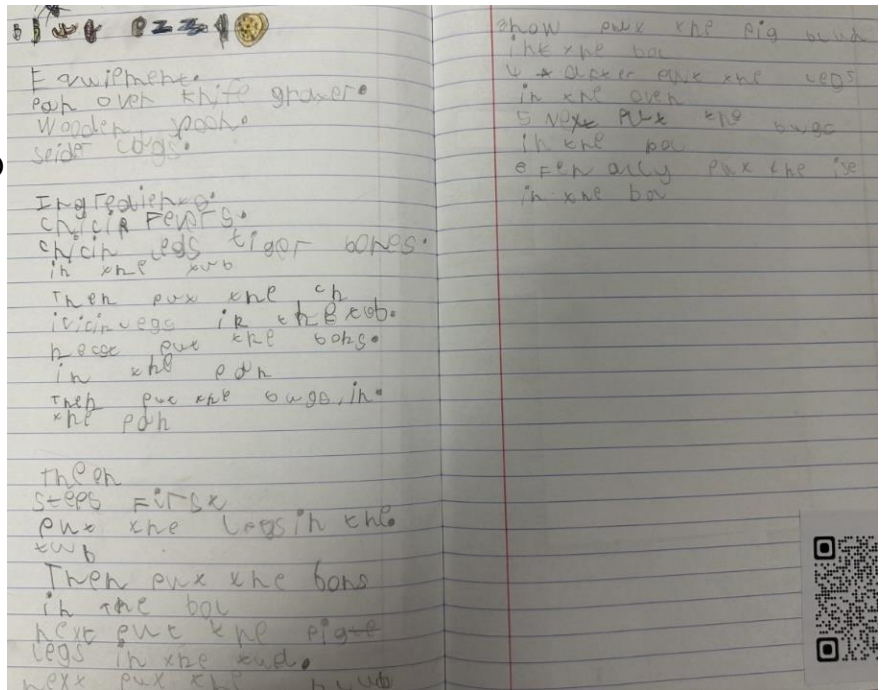 Equipment.
pan over knife grater.
Wooden spoon.
seider cogs.
Ingredients.
chicin Fevers.
chicin legs tiger bones.
in the tub
Then put the ch
icicin legs in the tob.
necst put the bons.
in the pan
Then put the bugs in.
the pan
Then
steps First
put the legs in the.
tub
Then put the bons
in the bol
next put the pig
legs in the tud.
next put the blub
show put the pig blud
int the bol
4 after put the legs
in the oven
5 Next put the bugs
in the bol
6 Fen arly put the ise
in the bol